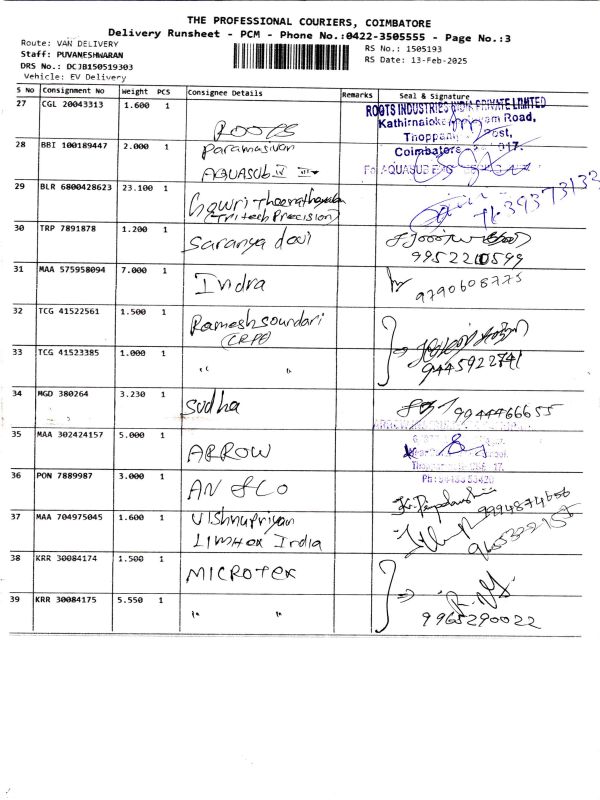 THE PROFESSIONAL COURIERS, COIMBATORE
Delivery Runsheet - PCM - Phone No.:0422-3505555 - Page No.:3
Route: VAN DELIVERY
Staff: PUVANESHWARAN
DRS No.: DCJB150519303
Vehicle: EV Delivery
RS No.: 1505193
RS Date: 13-Feb-2025
S No Consignment No Weight PCS Consignee Details Remarks Seal & Signature
27 CGL 20043313 1.600 1 ROOTS
ROOTS INDUSTRIES INDIA PRIVATE LIMITED
Road,
Thoppam Post,
Coimbatore 017.
28 BBI 100189447 2.000 1 Paramasivan
AQUASUB IV
For AQUASUB ENG
29 BLR 6800428623 23.100 1 Gowri
(Tritech Precision)
30 TRP 7891878 1.200 1 Saranya devi
9952210599
31 MAA 575958094 7.000 1 Indra 9790608775
32 TCG 41522561 1.500 1 Rameshsoundari
(CRPO)
33 TCG 41523385 1.000 1 " "
9445922741
34 MGD 380264 3.230 1 Sudha 9944466655
35 MAA 302424157 5.000 1 ARROW
36 PON 7889987 3.000 1 AN & CO
9994874666
37 MAA 704975045 1.600 1 Vishnupriyan
Limhox India
38 KRR 30084174 1.500 1 MICROTEK
39 KRR 30084175 5.550 1 " "
9965290022